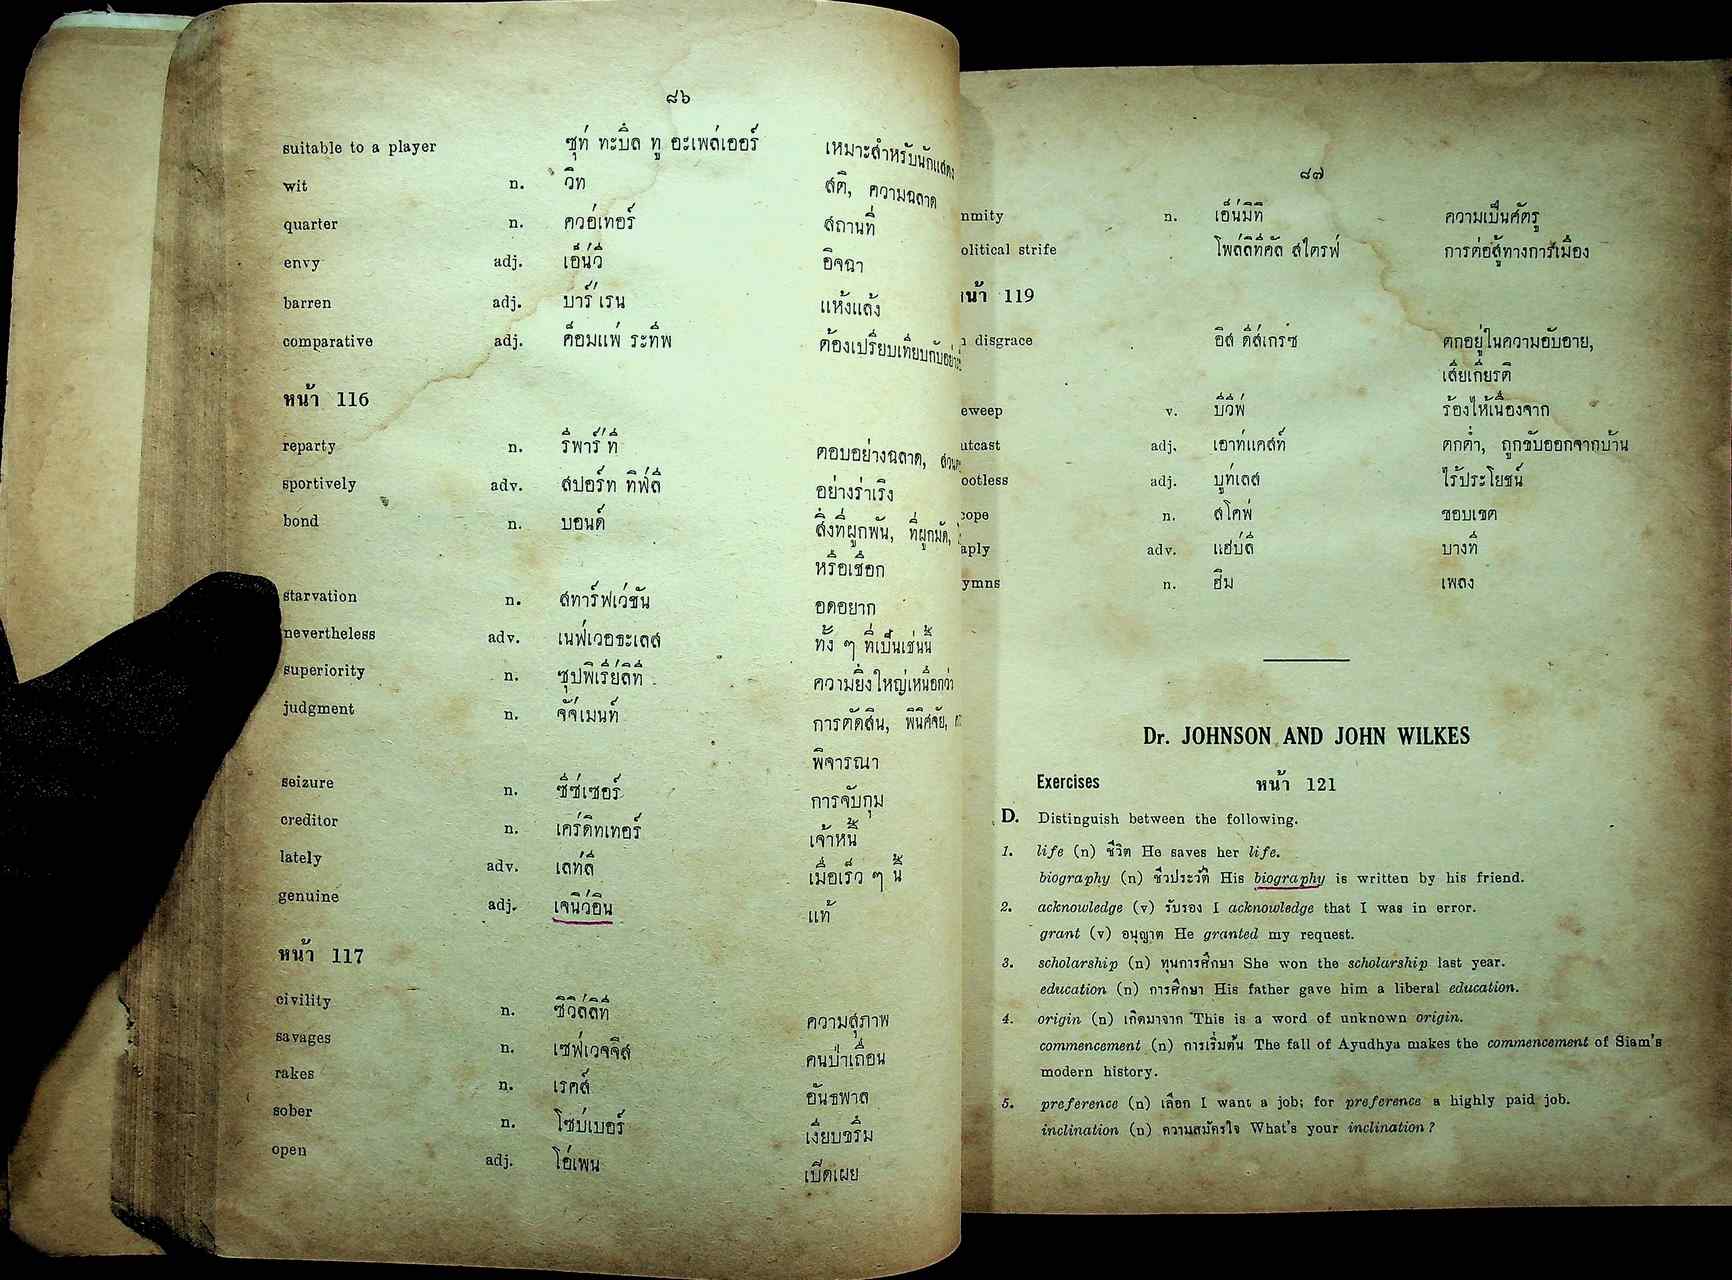 ๘๖
suitable to a player ซุท่ ทะบิ้ล ทู อะเพล่เยอร์ เหมาะสำหรับนักแสดง
wit n. วิท สติ, ความฉลาด
quarter n. ควอ่เทอร์ สถานที่
envy adj. เอ็น่วี่ อิจฉา
barren adj. บาร์่เรน แห้งแล้ง
comparative adj. ค็อมแพ่ ระทีฟ ต้องเปรียบเทียบกับ
หน้า 116
reparty n. รีพาร์่ที่ ตอบอย่างฉลาด,
sportively adv. สปอร์ท ทีฟลี่ อย่างร่าเริง
bond n. บอนด์ สิ่งที่ผูกพัน, ที่ผูกมัด,
หรือเชือก
starvation n. สทาร์ฟเว่ชัน อดอยาก
nevertheless adv. เนฟเวอระเลส ทั้ง ๆ ที่เป็นเช่นนี้
superiority n. ซุปพิเรีย่ลิที่ ความยิ่งใหญ่เหนือกว่า
judgment n. จั๊จเมนท์ การตัดสิน, พินิศจัย,
พิจารณา
seizure n. ซีซ่เซอร์ การจับกุม
creditor n. เคร่ดิทเทอร์ เจ้าหนี้
lately adv. เลท่ลี่ เมื่อเร็ว ๆ นี้
genuine adj. เจนิว่อิน แท้
หน้า 117
civility n. ซิวิ่ลลิที่ ความสุภาพ
savages n. เซฟ่เวจจิส คนป่าเถื่อน
rakes n. เรคส์ อันธพาล
sober n. โซบ่เบอร์ เงียบขรึม
open adj. โอ่เพน เปิดเผย
๘๗
nmity n. เอ็น่มิที ความเป็นศัตรู
olitical strife โพล่ลิทิคัล สไตรฟ การต่อสู้ทางการเมือง
หน้า 119
disgrace อิส ดีส่เกรซ ตกอยู่ในความอับอาย,
เสียเกียรติ
eweep v. บีวีฟ ร้องไห้เนื่องจาก
utcast adj. เอาท่แคสท์ ตกต่ำ, ถูกขับออกจากบ้าน
ootless adj. บูท่เลส ไร้ประโยชน์
cope n. สโคพ่ ขอบเขต
aply adv. แฮบ่ลี่ บางที
ymns n. ฮิม เพลง
Dr. JOHNSON AND JOHN WILKES
Exercises หน้า 121
D. Distinguish between the following.
1. life (n) ชีวิต He saves her life.
biography (n) ชีวประวัติ His biography is written by his friend.
2. acknowledge (v) รับรอง I acknowledge that I was in error.
grant (v) อนุญาต He granted my request.
3. scholarship (n) ทุนการศึกษา She won the scholarship last year.
education (n) การศึกษา His father gave him a liberal education.
4. origin (n) เกิดมาจาก This is a word of unknown origin.
commencement (n) การเริ่มต้น The fall of Ayudhya makes the commencement of Siam's
modern history.
5. preference (n) เลือก I want a job; for preference a highly paid job.
inclination (n) ความสมัครใจ What's your inclination?